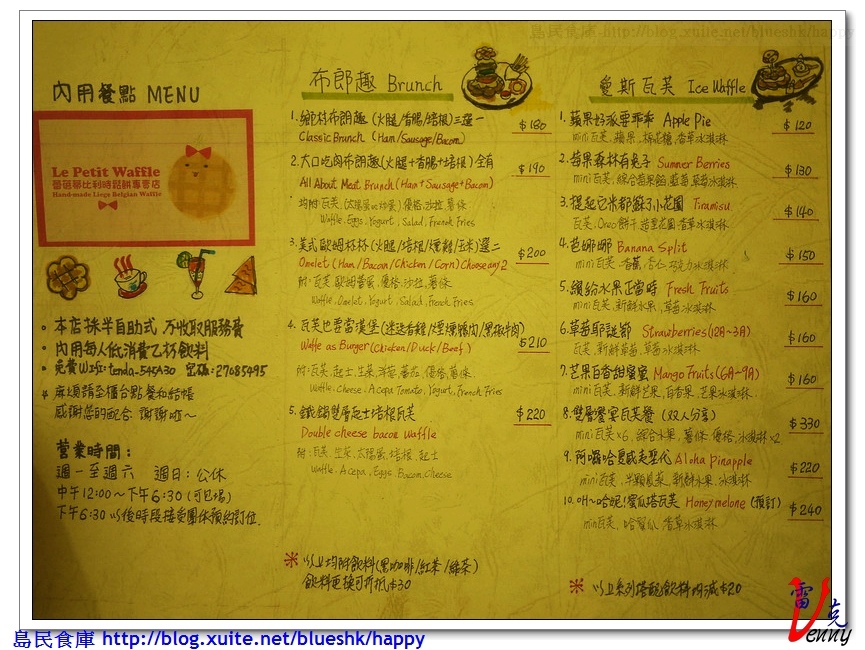 島民食庫 http://blog.xuite.net/blueshk/happy
內用餐點 MENU
Le Petit Waffle
蕾蓓蒂比利時鬆餅專賣店
Hand-made Liege Belgian Waffle
。本店採半自助式 不收取服務費
。內用每人低消費乙杯飲料
。免費Wifi: tenda-545A30 密碼: 27085495
麻煩請至櫃台點餐和結帳
感謝您的配合 謝謝啦~
營業時間:
週一至週六 週日:公休
中午12:00~下午6:30 (可包場)
下午6:30以後時段接受團体預約訂位.
布郎趣 Brunch
1. 鄉村布朗趣 (火腿/香腸/培根)三選一 $180
Classic Brunch (Ham/Sausage/Bacon)
2. 大口吃肉布朗趣(火腿+香腸+培根)全有 $190
All About Meat Brunch (Ham+Sausage+Bacon)
均附瓦芙、(太陽蛋or炒蛋)、優格、沙拉、薯條
Waffle, Eggs, Yogurt, Salad, French Fries
3. 美式歐姆杯杯 (火腿/培根/燻雞/玉米)選二 $200
Omelet (Ham/Bacon/Chicken/Corn) Choose any 2
附: 瓦芙、歐姆蕾蛋、優格、沙拉、薯條
Waffle, Omelet, Yogurt, Salad, French Fries
4. 瓦芙也要當漢堡 (迷迭香雞/煙燻鴨肉/黑椒牛肉) $210
Waffle as Burger (Chicken/Duck/Beef)
附: 瓦芙、起士、生菜、洋菇、蕃茄、優格、薯條
Waffle, Cheese, A cepa Tomato, Yogurt, French Fries
5. 鐵鍋雙層起士培根瓦芙 $220
Double cheese bacon Waffle
附: 瓦芙、生菜、太陽蛋、培根、起士
Waffle, A cepa, Eggs, Bacon, Cheese
※ 以上均附飲料(黑咖啡/紅茶/綠茶)
飲料更換可折抵$30
愛斯瓦芙 Ice Waffle
1. 蘋果好派要乖乖 Apple Pie $120
mini瓦芙、蘋果、棉花糖、香草冰淇淋
2. 莓果森林有兔子 Summer Berries $130
mini瓦芙、綜合莓果餡、藍莓、草莓冰淇淋
3. 提起它米都蘇了小花園 Tiramisu $140
瓦芙、Oreo餅干、造型花園、香草冰淇淋
4. 芭娜娜 Banana Split $150
mini瓦芙、香蕉、杏仁、巧克力冰淇淋
5. 繽紛水果正當時 Fresh Fruits $160
mini瓦芙、新鮮水果、草莓冰淇淋
6. 草莓耶誕節 Strawberries(12月~3月) $160
瓦芙、新鮮草莓、草莓冰淇淋
7. 芒果百香甜蜜蜜 Mango Fruits(6月~9月) $160
mini瓦芙、新鮮芒果、百香果、芒果冰淇淋
8. 雙層饗宴瓦芙餐 (双人分享) $330
mini瓦芙×6、綜合水果、薯條、優格、冰淇淋×2
9. 阿囉哈夏威夷堅代 Aloha Pinapple $220
mini瓦芙、半顆鳳梨、新鮮水果、冰淇淋
10. 呷~哈妮!蜜瓜塔瓦芙 Honey melone (預訂) $240
mini瓦芙、哈蜜瓜、香草冰淇淋
※ 以上系列搭配飲料內減$20
雷克
Venny
島民食庫 http://blog.xuite.net/blueshk/happy